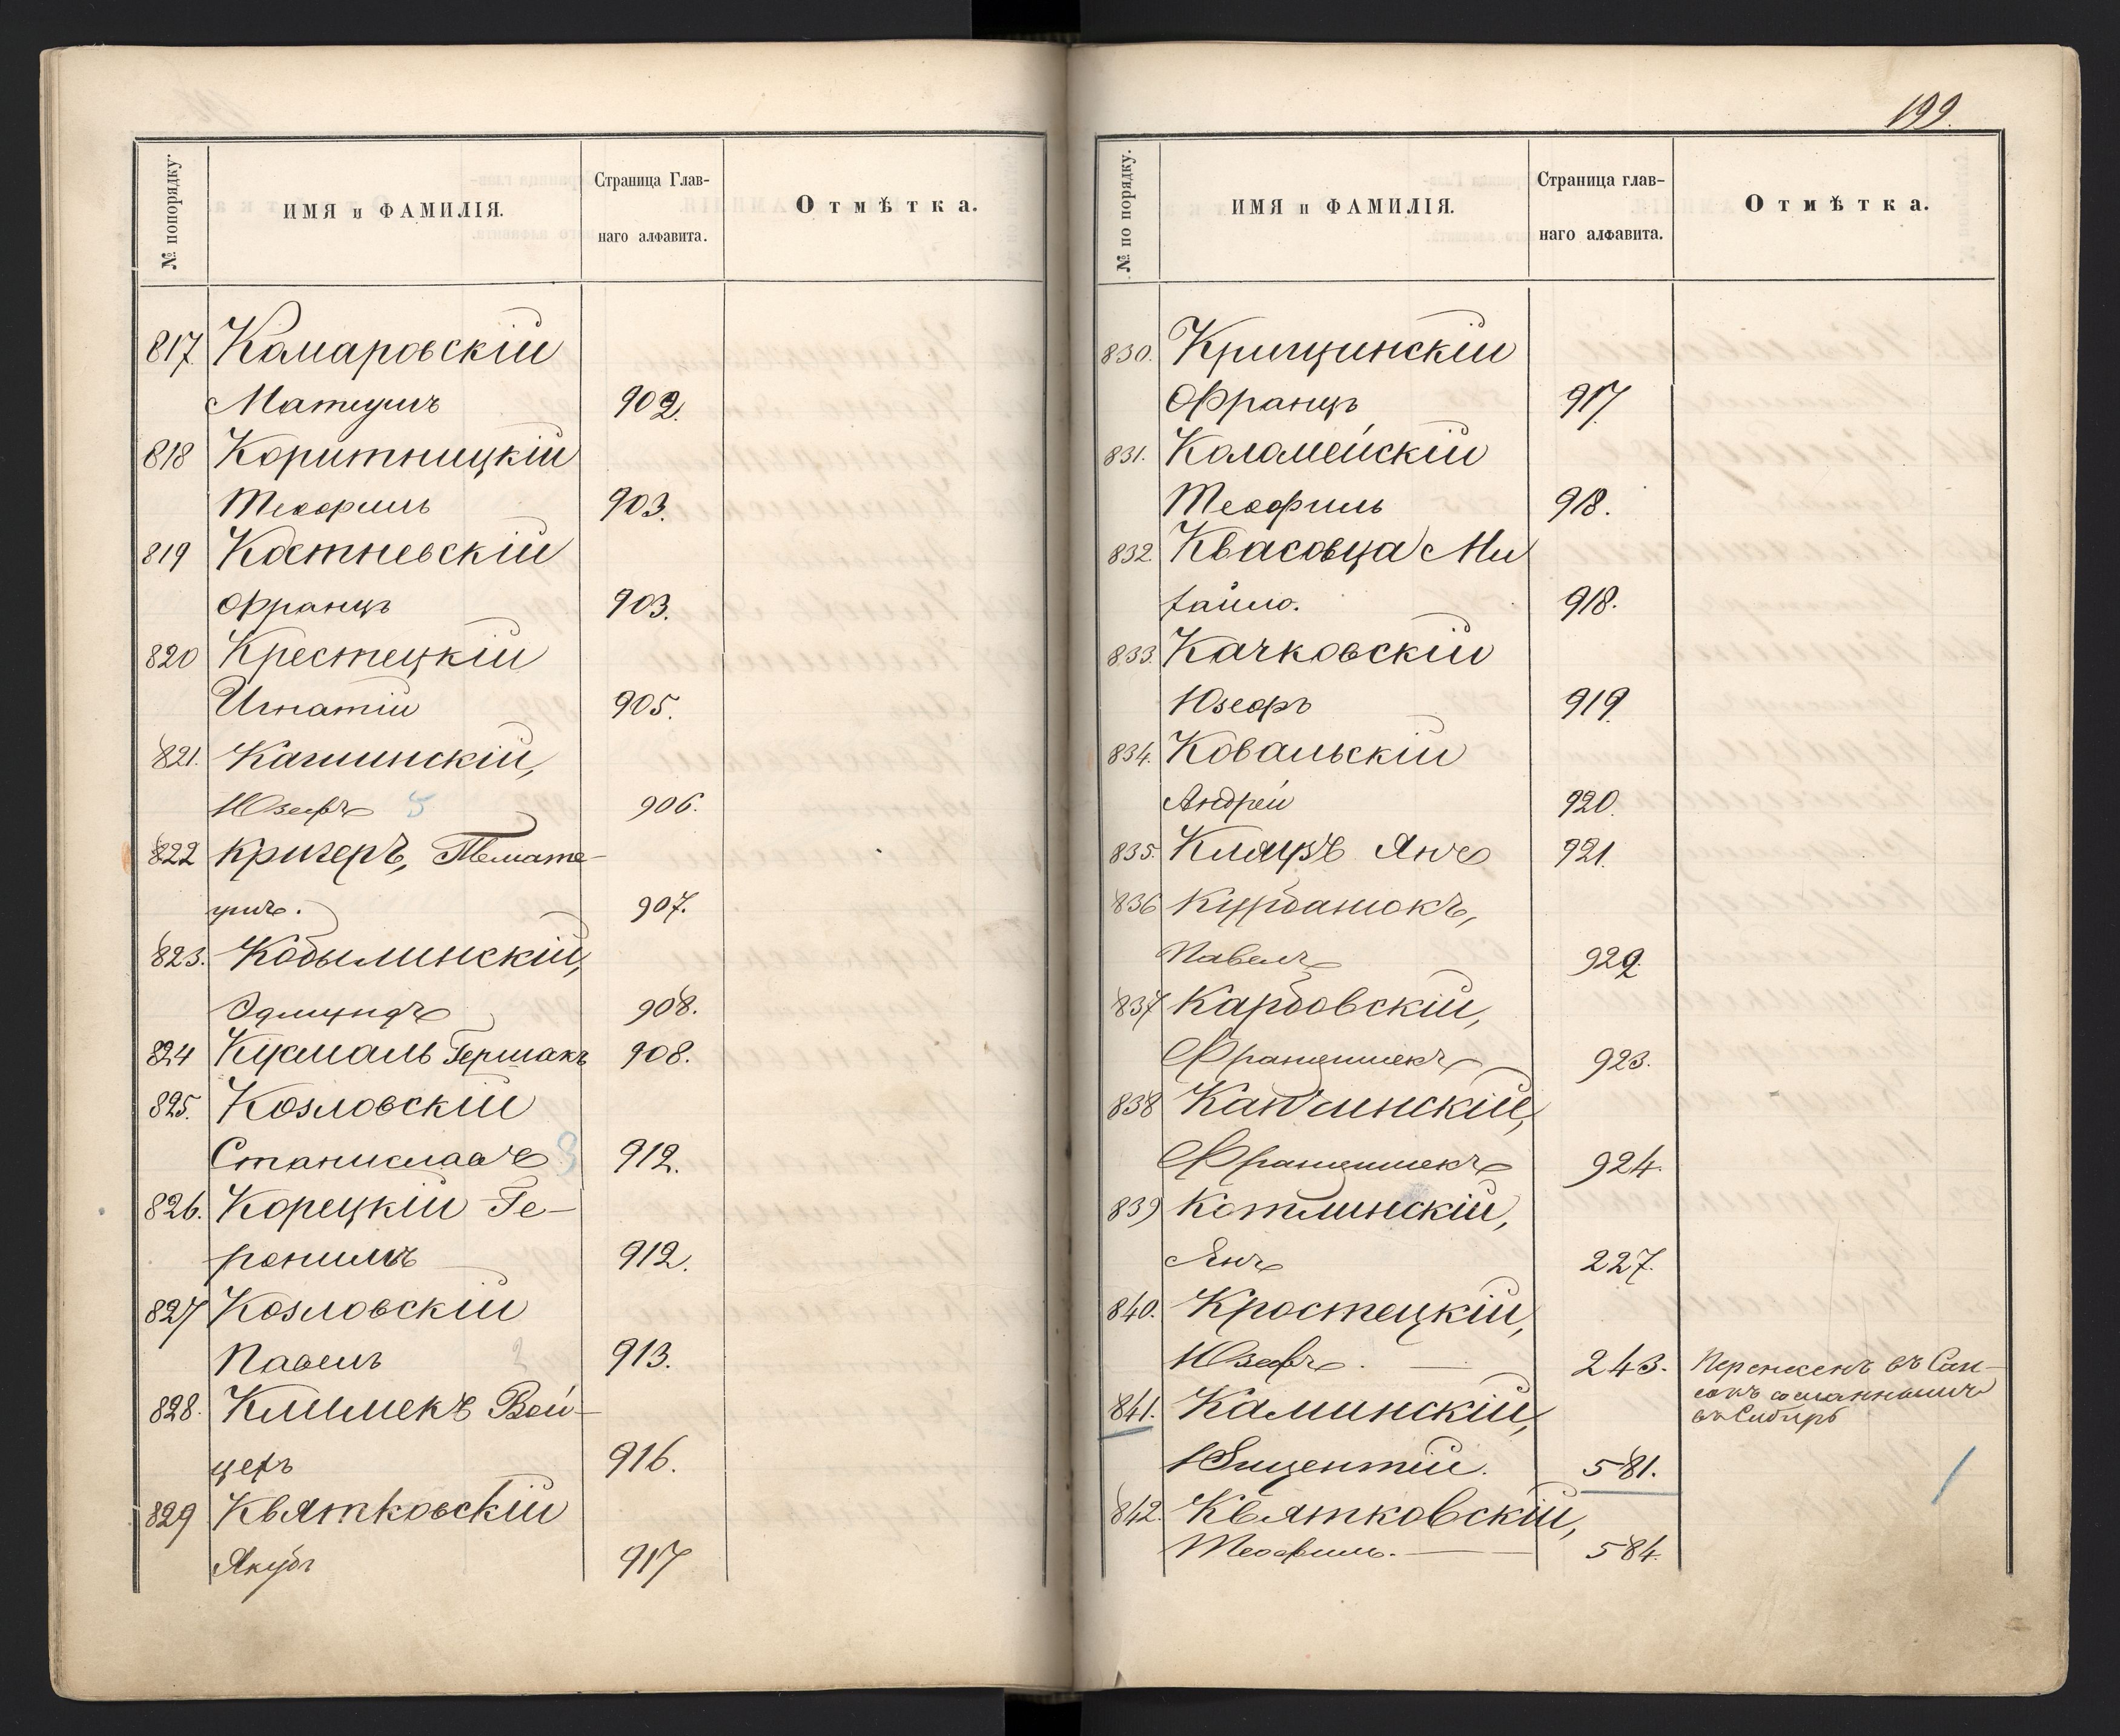 № попорядку.
ИМЯ и ФАМИЛІЯ.
Страница Глав-
наго алфавита.
Отмѣтка.
817. Комаровскій
Матеушъ 902.
818 Коритницкій
Теофиль 903.
819 Костневскій
Францъ 903.
820 Крестецкій
Игнатій 905.
821. Кашинскій,
Юзефъ 5 906.
822 Кригеръ,
907.
823. Кобылинскій,
Эдмундъ 908.
824 Кужаль Гершакъ 908.
825. Козловскій
Станиславъ 912.
826. Корецкій Ге-
ронимъ 912.
827 Козловскій
Павелъ 913.
828. Климекъ Вой-
цехъ 916.
829 Квятковскій
Якубъ 917
199.
№ по порядку.
ИМЯ и ФАМИЛІЯ.
Страница глав-
наго алфавита.
Отмѣтка.
830. Крищинскій
Францъ 917.
831. Коломейскій
Теофиль 918.
832. Квасовца Ми
хайло. 918.
833. Качковскій
Юзефъ 919.
834. Ковальскій
Андрей 920.
835. Кляръ Янъ 921.
836 Курбанокъ,
Павелъ 922.
837 Карбовскій,
Францишекъ 923.
838 Канчинскій,
Францишекъ 924.
839 Котлинскій,
Янъ 227.
840. Кростецкій,
Юзефъ. — 243. Перенесенъ въ Спи-
сокъ сосланнымъ
въ Сибирь
841. Каминскій,
Винцентій. 581.
842. Квятковскій,
Теофиль. — 584.